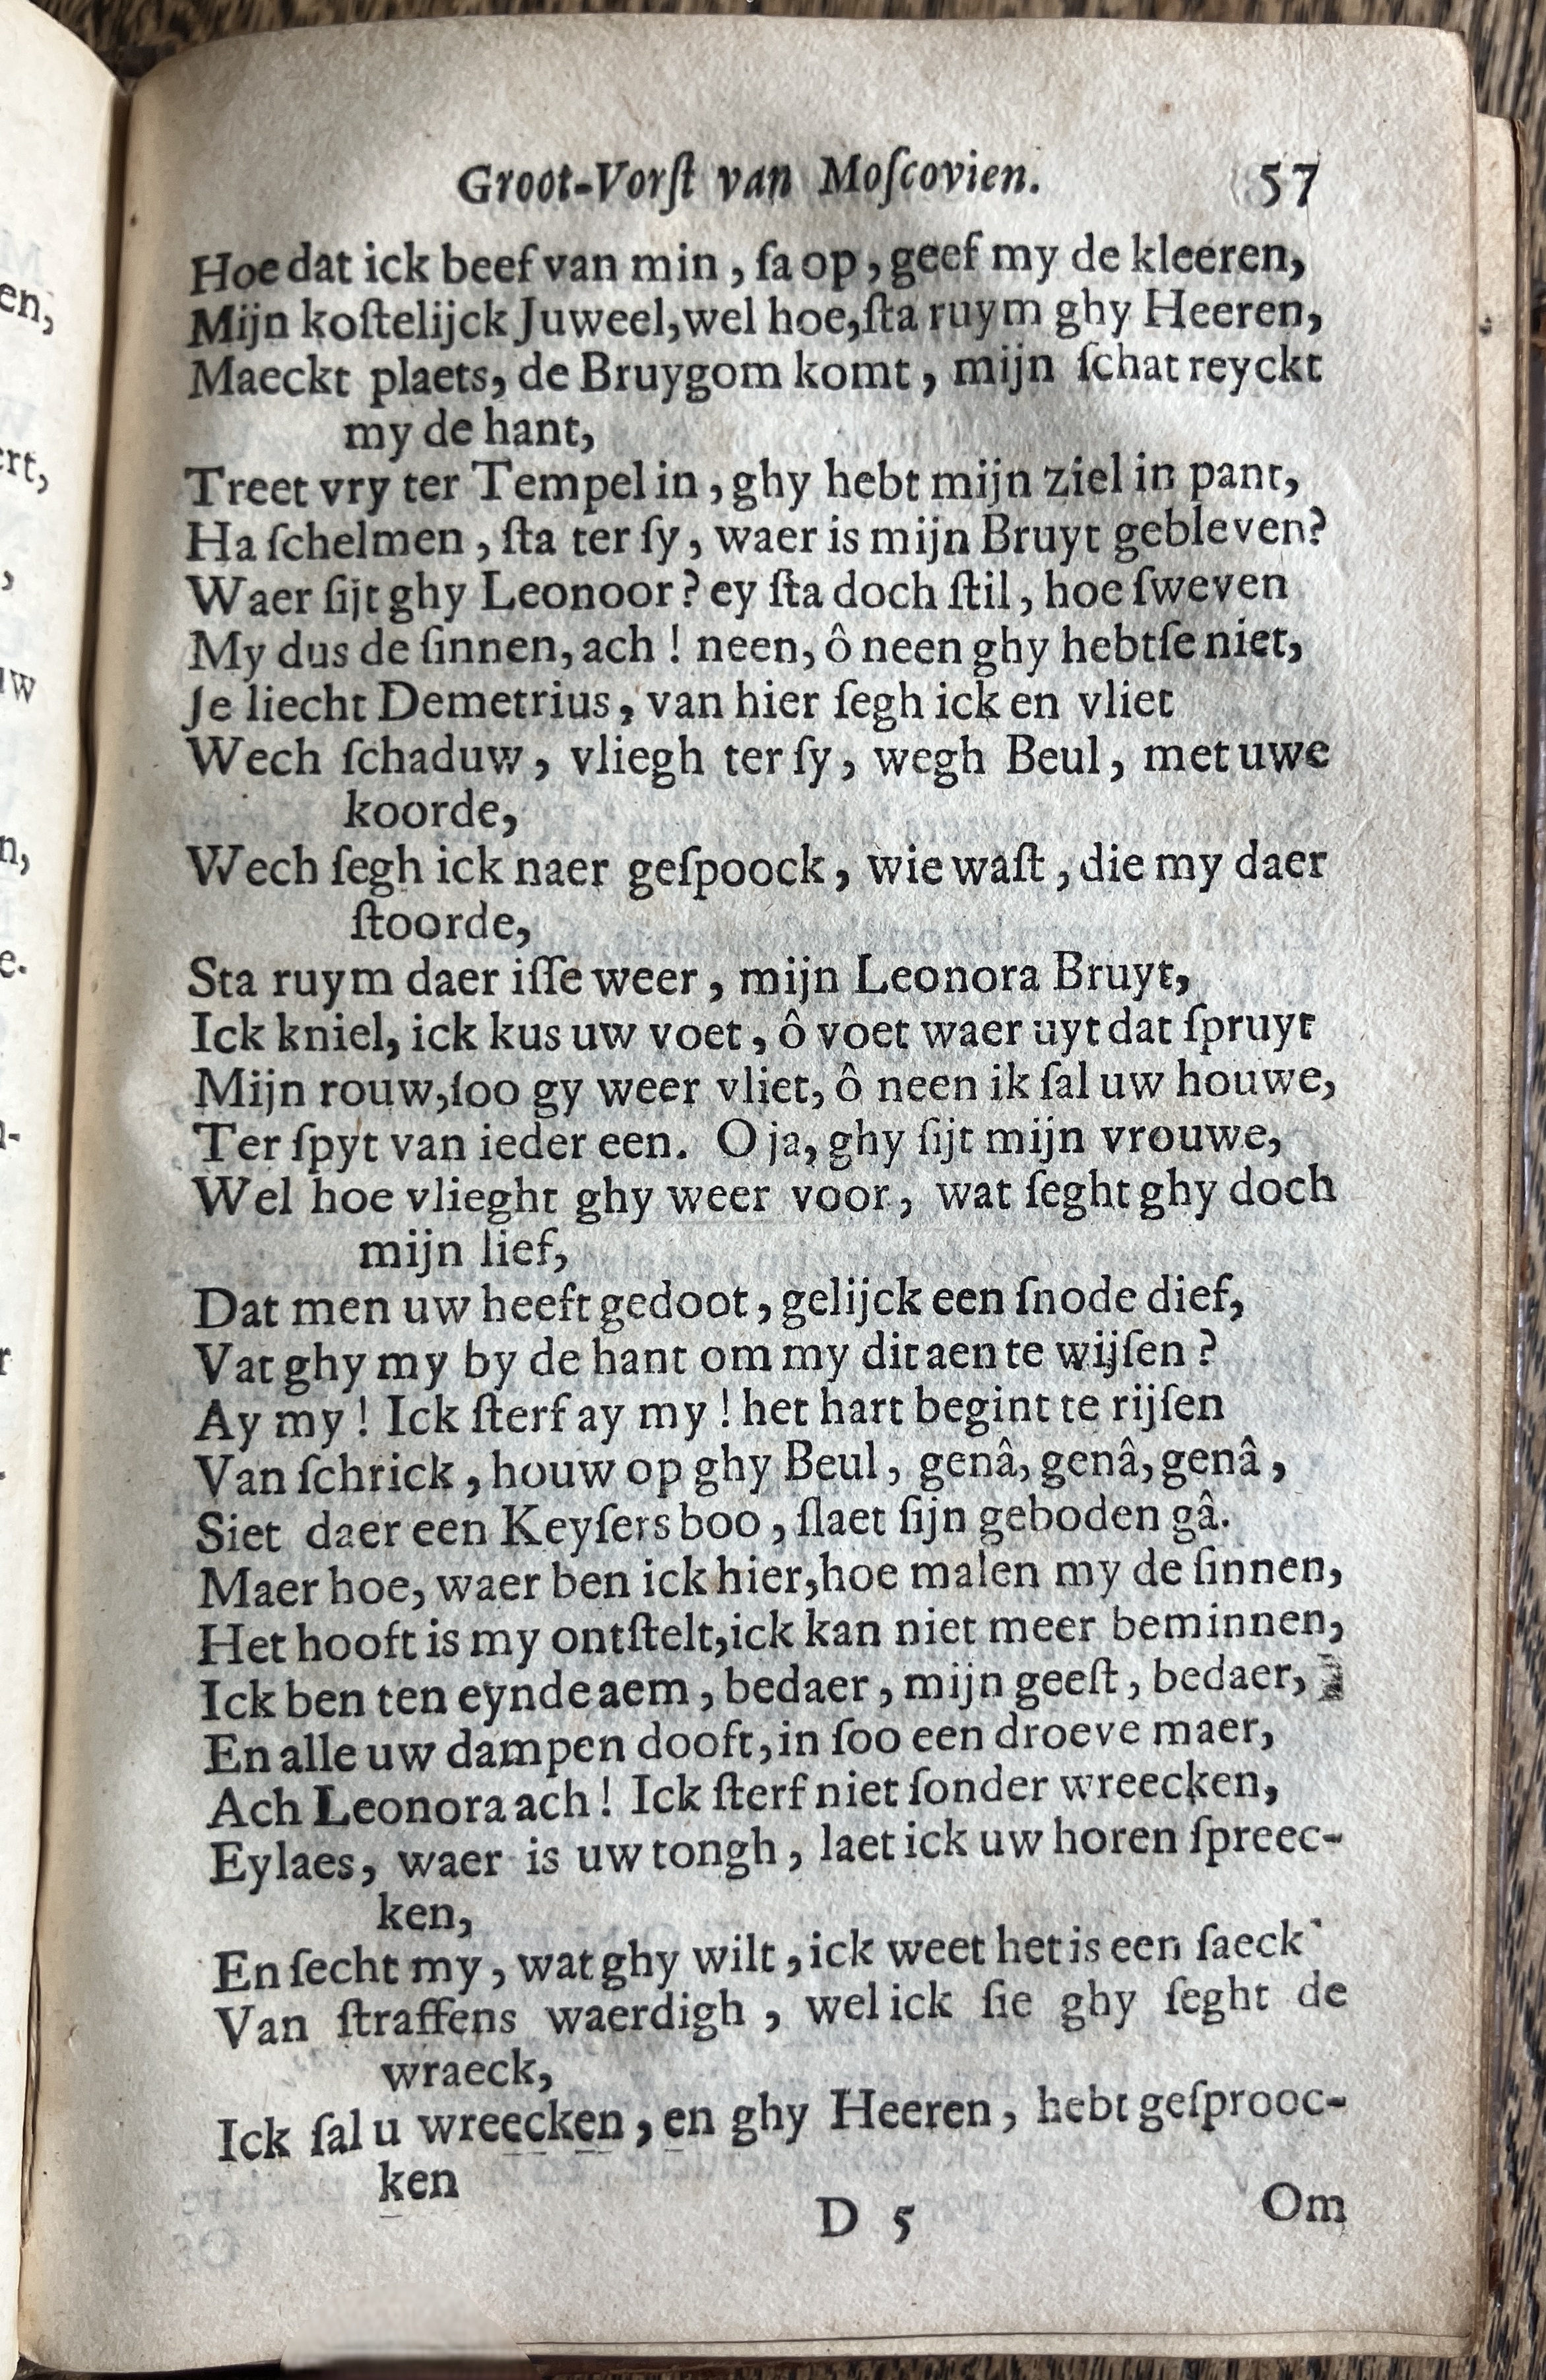 Groot-Vorſt van Moſcovien. 57
Hoe dat ick beef van min, ſa op, geef my de kleeren,
Mijn koſtelijck Juweel, wel hoe, ſta ruym ghy Heeren,
Maeckt plaets, de Bruygom komt, mijn ſchat reyckt
my de hant,
Treet vry ter Tempel in, ghy hebt mijn ziel in pant,
Ha ſchelmen, ſta ter ſy, waer is mijn Bruyt gebleven?
Waer ſijt ghy Leonoor? ey ſta doch ſtil, hoe ſweven
My dus de ſinnen, ach! neen, ô neen ghy hebtſe niet,
Je liecht Demetrius, van hier ſegh ick en vliet
Wech ſchaduw, vliegh ter ſy, wegh Beul, met uwe
koorde,
Wech ſegh ick naer geſpoock, wie waſt, die my daer
ſtoorde,
Sta ruym daer iſſe weer, mijn Leonora Bruyt,
Ick kniel, ick kus uw voet, ô voet waer uyt dat ſpruyt
Mijn rouw, ſoo gy weer vliet, ô neen ik ſal uw houwe,
Ter ſpyt van ieder een. O ja, ghy ſijt mijn vrouwe,
Wel hoe vlieght ghy weer voor, wat ſeght ghy doch
mijn lief,
Dat men uw heeft gedoot, gelijck een ſnode dief,
Vat ghy my by de hant om my dit aen te wijſen?
Ay my! Ick ſterf ay my! het hart begint te rijſen
Van ſchrick, houw op ghy Beul, genâ, genâ, genâ,
Siet daer een Keyſers boo, ſlaet ſijn geboden gâ.
Maer hoe, waer ben ick hier, hoe malen my de ſinnen,
Het hooft is my ontſtelt, ick kan niet meer beminnen,
Ick ben ten eynde aem, bedaer, mijn geeſt, bedaer,
En alle uw dampen dooft, in ſoo een droeve maer,
Ach Leonora ach! Ick ſterf niet ſonder wreecken,
Eylaes, waer is uw tongh, laet ick uw horen ſpreec-
ken,
En ſecht my, wat ghy wilt, ick weet het is een ſaeck
Van ſtraffens waerdigh, wel ick ſie ghy ſeght de
wraeck,
Ick ſal u wreecken, en ghy Heeren, hebt geſprooc-
ken
D 5 Om